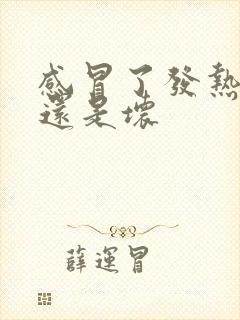 感冒了發熱
還是壞
薛運冒